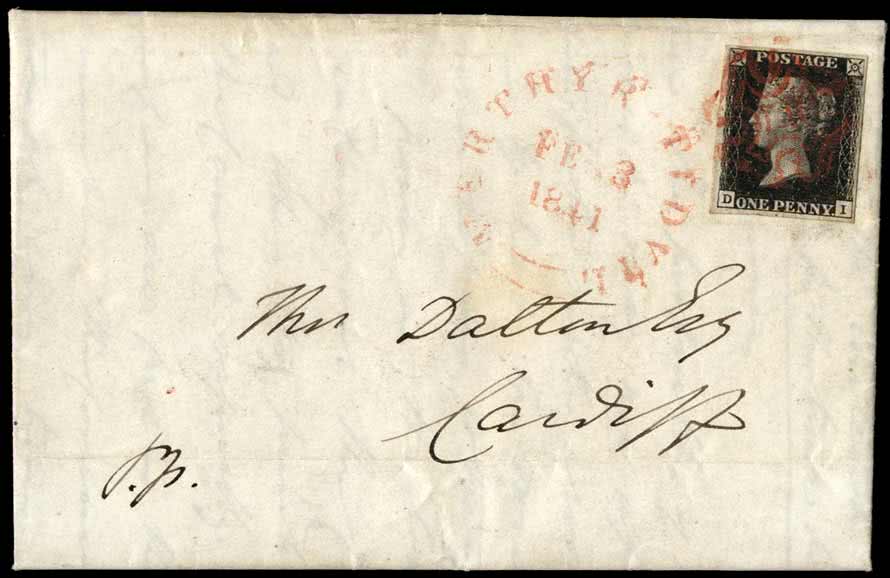 POSTAGE
D ONE PENNY. I
MERTHYR TYDVIL
FE 3
1841
Thos Dalton Esq
Cardiff